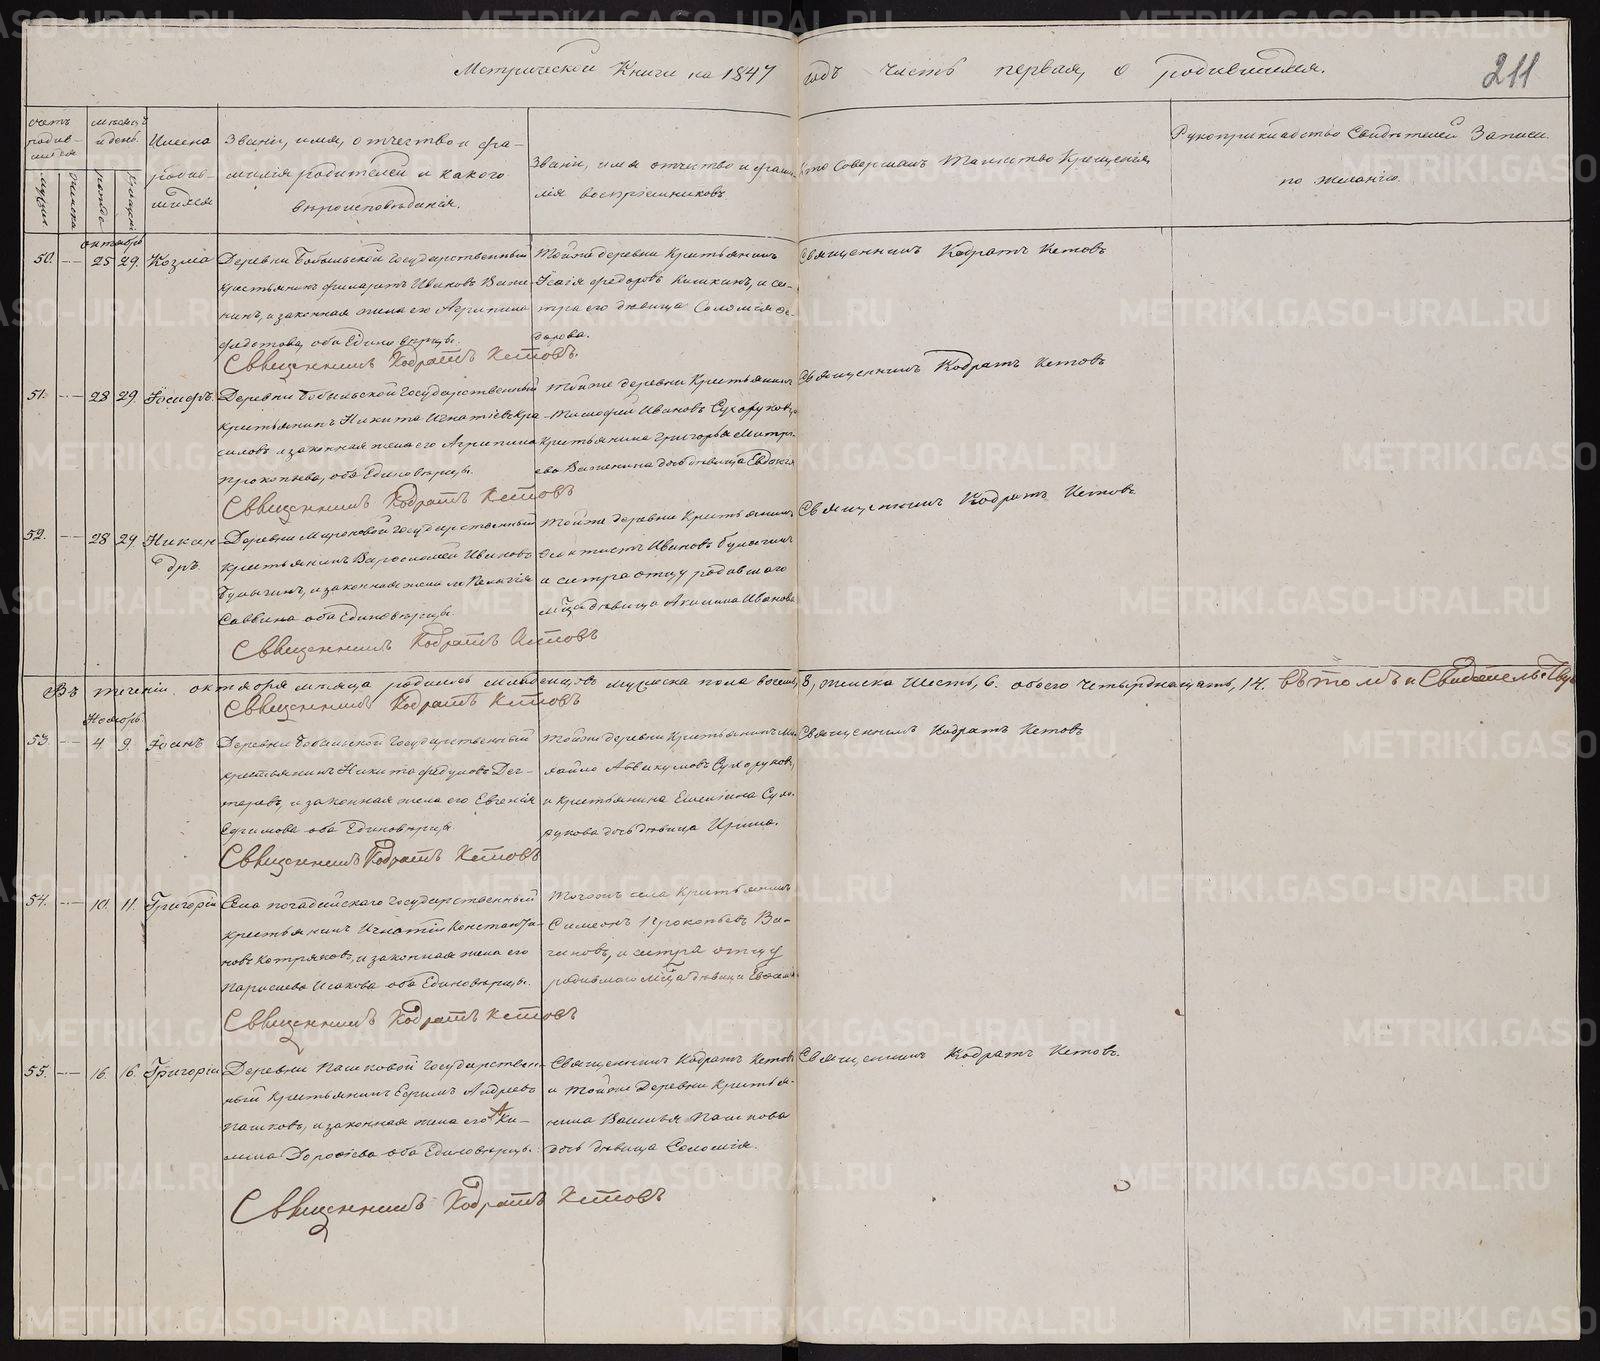 Метрической Книги на 1847 годъ часть первая, о родившихся.
211
счетъ родив-шихся
мужска
женска
месяцъ и день.
рожде
крещен
Имена
родив-
шихся
Званіе, имя, отчество и фа-
милія родителей и какого
вероисповеданія.
Званіе, имя отчество и фами-
лія воспріемниковъ
кто совершалъ таинство крещенія
Рукоприкладство Свидетелей Записи
по желанію.
октябрь
50. 25 29. Козма
Деревни Бобыльской государственный
крестьянинъ филаретъ Ивановъ Важе
нинъ, и законная жена его Агрипина
федотова, оба Единоверцы.
Священникъ Кодратъ Кетовъ.
Тойже деревни Крестьянинъ
Ісаія федоровъ Кишкинъ, и се-
тра его девица Соломія фе-
дорова.
Священникъ Кодратъ Кетовъ
51. 28 29. Іосифъ.
Деревни Бобыльской Государственный
крестьянинъ Никита Игнатіевъ Кра
силовъ и законная жена его Агрипина
Прокопьева, оба Единоверцы.
Священникъ Кодратъ Кетовъ
Тойже деревни Крестьянинъ
Тимофей Ивановъ Сухоруковъ, и
крестьянина Григорья Митрі-
ева Важенина дочь девица Евдокія
Священникъ Кодратъ Кетовъ
52. 28 29. Никан
дръ.
Деревни Мироновой государственный
крестьянинъ Варфоломей Ивановъ
Булыгинъ, и законная жена его Пелагія
Саввина оба Единоверцы.
Священникъ Кодратъ Кетовъ
Тойже деревни Крестьянинъ
Ивановъ Булыгинъ
и сестра отцу родившаго
девица Акилина Иванова
Священникъ Кодратъ Кетовъ
Въ теченіи октября месяца родилось младенцовъ мужска пола восемь, 8, женска шесть, 6. обоего четырнадцать, 14. въ томъ и Свидетельствую
Священникъ Кодратъ Кетовъ
Ноябрь
53. 4 9. Іоанъ
Деревни Бобыльской Государственный
крестьянинъ Никита федуловъ Дег-
теревъ, и законная жена его Евгенія
оба Единоверцы
Священникъ Кодратъ Кетовъ
Тойже деревни Крестьянинъ Ми
хайло Аввакумовъ Сухоруковъ,
и крестьянина Сухо-
рукова дочь девица Ирина.
Священникъ Кодратъ Кетовъ
54. 10. 11. Григорій
Села государственный
крестьянинъ Игнатій Константи-
новъ и законная жена его
Исакова оба Единоверцы.
Священникъ Кодратъ Кетовъ
Тогожъ села Крестьянинъ
Симеонъ Прокопьевъ Ва-
гановъ, и сетра отцу
родившаго девица
55. 16. 16. Григорій
Деревни Пашковой Государствен-
ный крестьянинъ Ефимъ Андреевъ
Пашковъ, и законная жена его Аки-
лина Дорофіева оба Единоверцы.
Священникъ Кодратъ Кетовъ
Священникъ Кодратъ Кетовъ
и тойже Деревни Крестья-
нина Василья Пашкова
дочь девица Соломія.
Священникъ Кодратъ Кетовъ.
METRIKI.GASO-URAL.RU